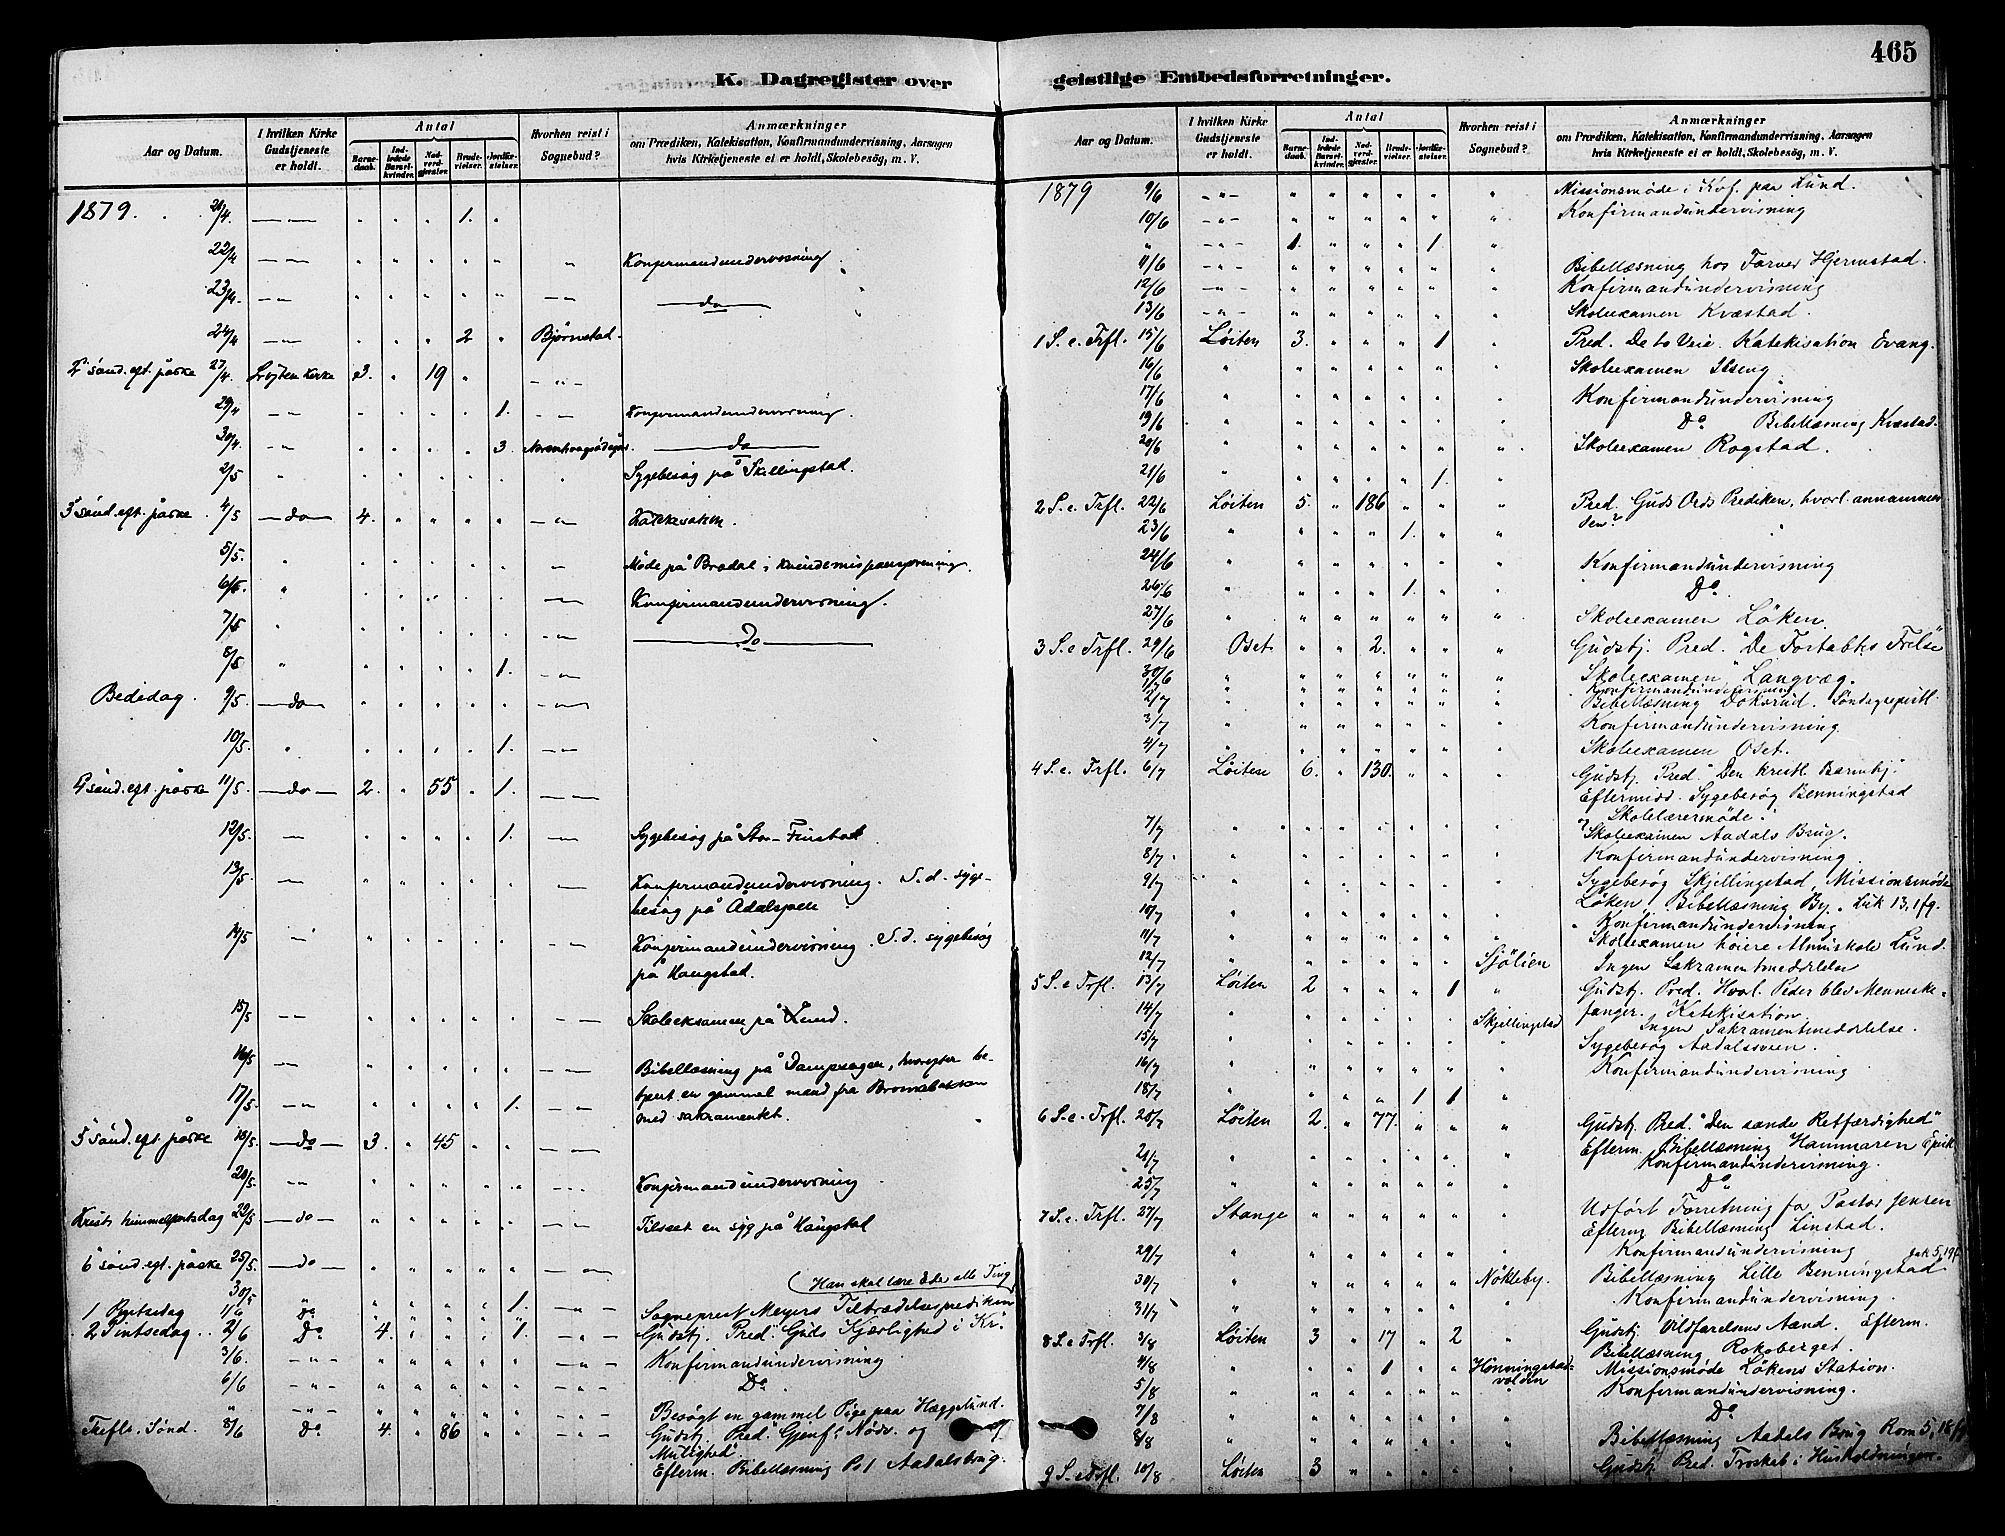 465
K. Dagregister over
Aar og Datum.
I hvilken Kirke Gudstjeneste er holdt.
Antal
Barnedaab.
Indledede Barselkvinder.
Nadverdgjæster.
Brudevielser.
Jordfæstelser.
Hvorhen reist i Sognebud?
Anmærkninger
om Prædiken, Katekisation, Konfirmandundervisning, Aarsagen
hvis Kirketjeneste ei er holdt, Skolebesøg, m. V.
1879. 21/4. 1.
22/4 Konfirmandundervisning
23/4. do
24/4 2 Bjørnstad.
2 sönd. eft. påske 27/4. Løjten Kirke 3. 19
29/4 1. Konfirmandundervisning.
30/4. 3. do
2/5 Sygebesøg på Skillingstad.
3 sönd. eft. påske 4/5 do 4. Katekisation.
5/5. Møde på Bradal i kvindemissjonsforening.
6/5. Konfirmandundervisning.
7/5 Do
8/5 1.
Bededag. 9/5. do
10/5. 1.
4 sönd. eft. påske 11/5. do 2. 55 1.
12/5. 1. Sygebesøg på Stor-Finstad
13/5. Konfirmandundervisning. S. d. syge-
besøg på
14/5 Konfirmandundervisning. S. d. sygebesøg
på Haugstad.
15/5 Skoleeksamen på Lund.
16/5. Bibellæsning på Dampsagen, hvorefter be-
17/5. 1. tjent en gammel mand fra
med sakramentet.
5 sönd. eft. påske 18/5. do 3. 45
20/5. Konfirmandundervisning
Kristi himmelfartsdag 22/5 do Tilseet en syg på Haugstad
6 sönd. eft. påske 25/5. do
(Han skal lære Eder alle Ting)
30/5 1.
1 Pintsedag 1/6 Do Sogneprest Meyers Tiltrædelsespræediken
2 Pintsedag 2/6 Do 4. 1. Gudstj. Pred. Guds Kjærlighed i Kr.
3/6. Konfirmandundervisning
6/6 Do
" Besøgt en gammel Pige paa Hæggelund.
Trefl. Sönd. 8/6 Do 4. 86 Gudstj. Pred. Gjenf. Nödv. og
Mulighed"
Efterm. Bibellæsning Aadalsbrug.
geistlige Embedsforretninger.
Aar og Datum.
I hvilken Kirke Gudstjeneste er holdt.
Antal
Barnedaab.
Indledede Barselkvinder.
Nadverdgjæster.
Brudevielser.
Jordfæstelser.
Hvorhen reist i Sognebud?
Anmærkninger
om Prædiken, Katekisation, Konfirmandundervisning, Aarsagen
hvis Kirketjeneste ei er holdt, Skolebesøg, m. V.
1879 9/6 Missionsmøde i Kvf. paa Lund.
10/6 Konfirmandundervisning
" 1. 1.
11/6 Bibellæsning hos Farver Hjermstad.
12/6 Konfirmandundervisning
13/6 Skoleexamen Kvæstad.
1 S. e. Trfl. 15/6 Løiten 3. 1 Pred. De to Veie. Katekisation Evang.
16/6 Skoleexamen Ilseng
17/6 Konfirmandundervisning
19/6 Do Bibellæsning Kvæstad.
20/6 Skoleexamen Rogstad.
21/6 1.
2 S. e. Trfl. 22/6 Løiten 5. 186 Pred. Guds Ords Prediken, hvorl. annammes
23/6 1. den?
24/6 Konfirmandundervisning
26/6 1. Do
27/6 Skoleexamen Løken.
3 S. e Trfl. 29/6 Oset 2. Gudstj. Pred. "De Fortabtes Frelse"
30/6 Skoleexamen Langvæg.
1/7 Konfirmandundervisning
2/7 Bibellæsning Doksrud. Söndagsepistl.
3/7 Konfirmandundervisning
4/7 Skoleexamen Oset.
4 S. e. Trfl. 6/7 Løiten 6. 130. Gudstj. Pred. "Den kristl. Barmhj."
Eftermidd. Sygebesøg Benningstad
7/7 Skolelærermøde.
Skoleexamen Aadals Brug.
8/7 Konfirmandundervisning
9/7 Sygebesøg Skjellingstad, Missionsmøde
10/7 Løken. Bibellæsning By. Luk 13, 1 fg.
11/7 Konfirmandundervisning
Skoleexamen høiere Almuskole Lund.
12/7 Sjölien Ingen Sakramentmeddelelse
5 S. e Trfl. 13/7 Løiten 2 1 Gudstj. Pred. Hvorl. Peder blev Menneske-
14/7 Skjellingstad fanger. Katekisation
Ingen Sakramentmeddelelse.
15/7 Sygebesøg Aadalsveien.
16/7 Konfirmandundervisning
18/7 1 1
6 S. e. Trfl. 20/7 Løiten 2. 77. Gudstj. Pred. "Den sande Retfærdighed"
Efterm. Bibellæsning Hammaren Epist.
21/7 Konfirmandundervisning.
25/7 Do
7 S. e. Trfl. 27/7 Stange Udført Forretning for Pastor Jensen
Efterm Bibellæsning Linstad.
29/7 Konfirmandundervisning
30/7 Nökleby. Bibellæsning Lille Benningstad Luk 5, 19f.
31/7 Konfirmandundervisning.
8 S. e Trfl. 3/8 Løiten 3 17 2 Gudstj. Vildfarelsens Aand. Efterm.
Bibellæsning Rokoberget.
4/8 1 Hönningstadvolden Missionsmøde Løkens Station.
5/8 Konfirmandundervisning.
7/8 Do
8/8 Bibellæsning Aadals Brug Rom 5, 18 f
9 S. e Trfl. 10/8 Løiten 3 Gudstj. Pred. Troskab i Husholdningen.